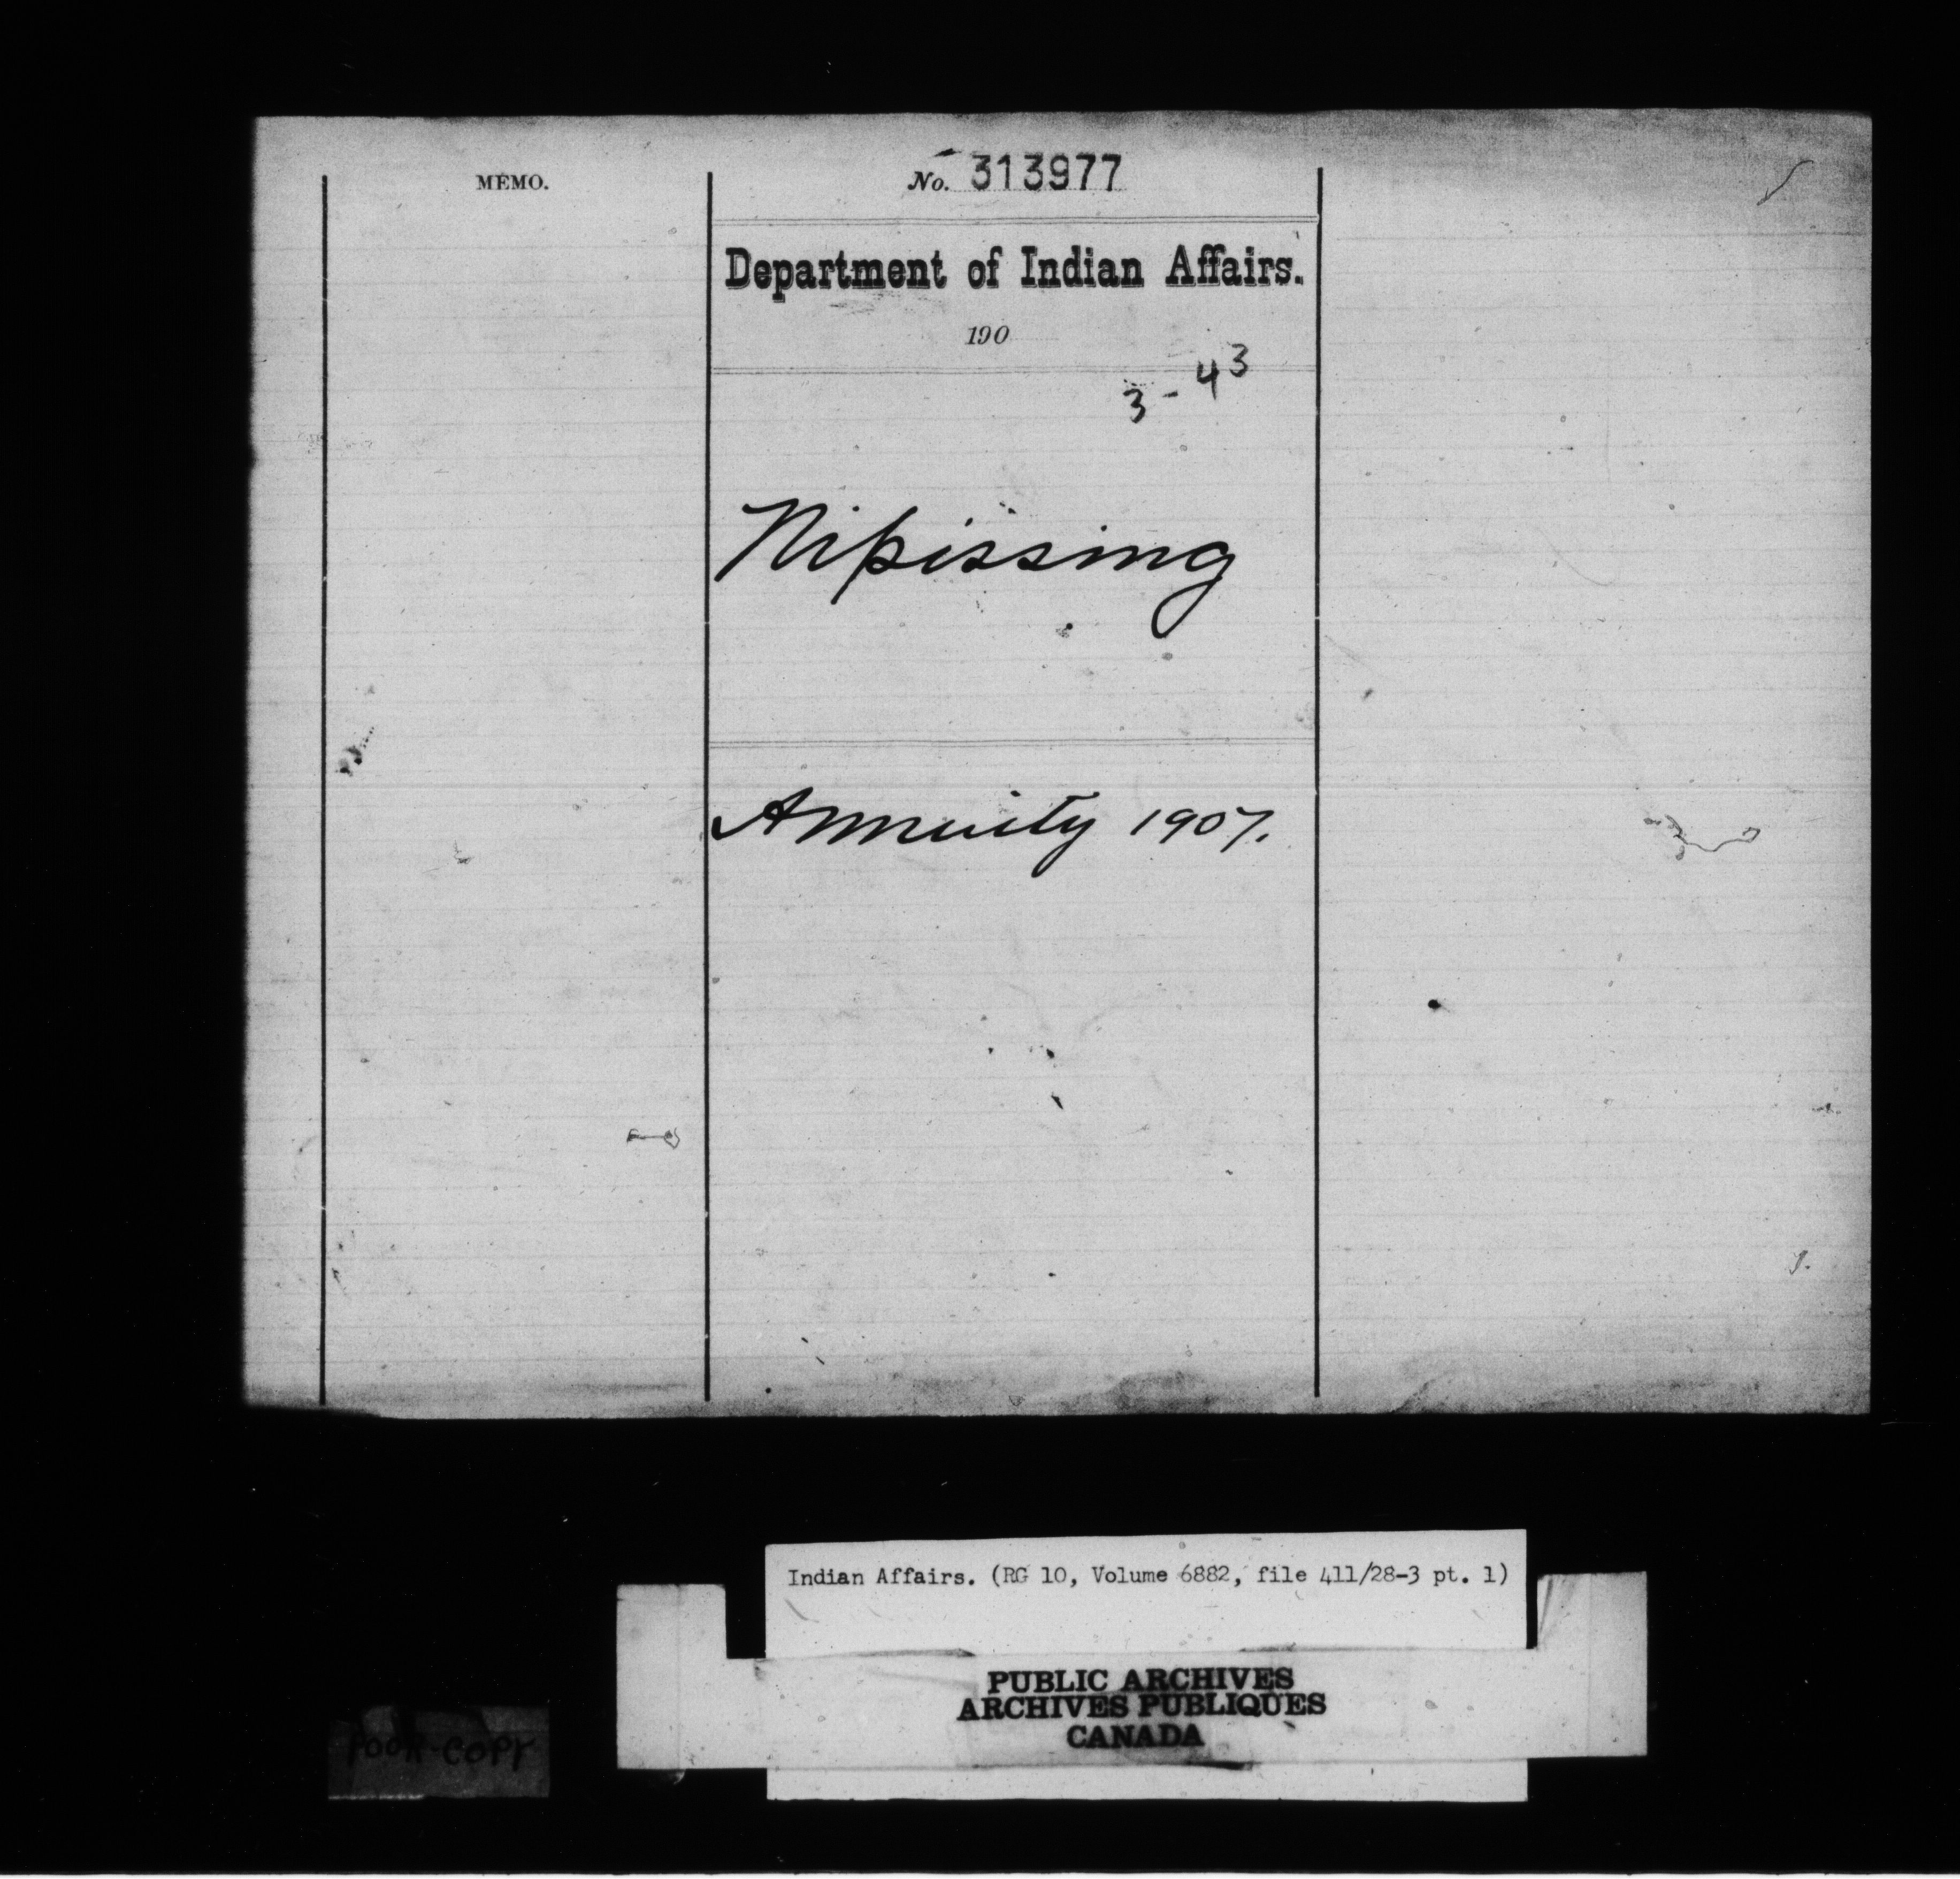 MEMO.
No. 313977
Department of Indian Affairs.
190
3-43
Nipissing
Annuity 1907.
Indian Affairs. (RG 10, Volume 6882, file 411/28-3 pt. 1)
PUBLIC ARCHIVES
ARCHIVES PUBLIQUES
CANADA
POOR COPY